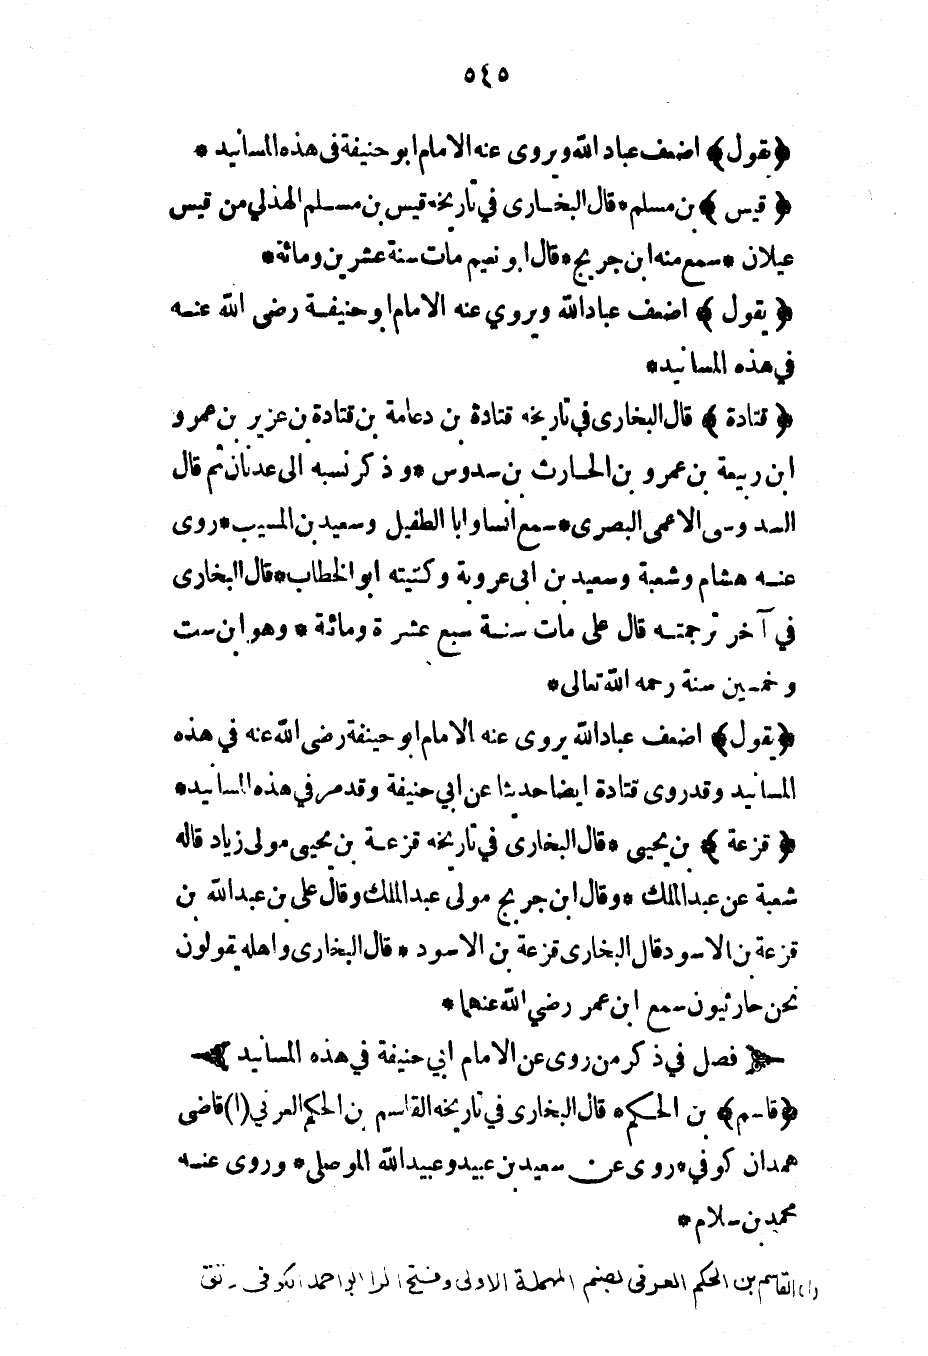 ٥٤٥
﴿يقول﴾ اضعف عباد الله ويروى عنه الامام ابو حنيفة فى هذه المسانيد *
﴿ قيس ﴾ بن مسلم * قال البخارى في تاريخه قيس بن مسلم الهذلي من قيس
عيلان * سمع منه ابن جريج * قال ابو نعيم مات سنة عشرين ومائة *
﴿ يقول ﴾ اضعف عباد الله ويروي عنه الامام ابو حنيفة رضى الله عنه
في هذه المسانيد *
﴿ قتادة ﴾ قال البخارى في تاريخه قتادة بن دعامة بن قتادة بن عزيز بن عمرو
ابن ربيعة بن عمرو بن الحارث بن سدوس * وذكر نسبه الى عدنان ثم قال
السدوسى الاعمى البصرى * سمع انسا وابا الطفيل وسعيد بن المسيب * روى
عنه هشام وشعبة وسعيد بن ابى عروبة وكنيته ابو الخطاب * قال البخارى
في آخر ترجمته قال على مات سنة سبع عشرة ومائة * وهو ابن ست
وخمسين سنة رحمه الله تعالى *
﴿يقول﴾ اضعف عباد الله يروى عنه الامام ابو حنيفة رضى الله عنه في هذه
المسانيد وقد روى قتادة ايضا حديثا عن ابي حنيفة وقد مر في هذه المسانيد *
﴿ قزعة ﴾ بن يحيى * قال البخارى في تاريخه قزعة بن يحيى مولى زياد قاله
شعبة عن عبد الملك * وقال ابن جريج مولى عبد الملك وقال على بن عبد الله بن
قزعة بن الاسود قال البخارى قزعة بن الاسود * قال البخارى واهله يقولون
نحن حارثيون سمع ابن عمر رضي الله عنهما *
فصل في ذكر من روى عن الامام ابي حنيفة في هذه المسانيد
﴿قاسم﴾ بن الحكم * قال البخارى في تاريخه القاسم بن الحكم العرني (١) قاضى
همدان كوفي * روى عن سعيد بن عبيد وعبيد الله الموصلي * وروى عنه
محمد بن سلام *
(١) القاسم بن الحكم العرفى بضم المهملة الاولى وفتح الراء ابو احمد الكوفى